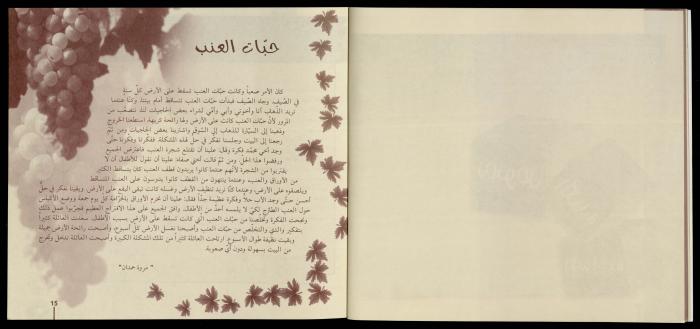 حبّات العنب
كان الأمر صعباً وكانت حبّات العنب تسقط على الأرض كلّ سنةٍ
في الصّيف. وجاء الصّيف فبدأت حبّات العنب تتساقط أمام بيتنا، وكنّا عندما
نريد الذّهاب أنا وأخوتي وأبي وأمّي لشراء بعض الحاجيات لنا، نتصعّب من
المرور لأنّ حبّات العنب كانت على الأرض ولها رائحة كريهة. استطعنا الخروج
وذهبنا إلى السيّارة للذهاب إلى السّوق واشترينا بعض الحاجيات ومن ثمّ
رجعنا إلى البيت وجلسنا نفكّر في حلّ لهذه المشكلة. ففكّرنا وفكّرنا حتّى
وجد أخي محمّد فكرة وقال: علينا أن نقتلع شجرة العنب. فاعترض الجميع
ورفضوا هذا الحلّ. ومن ثمّ قالت أختي صفاء: علينا أن نقول للأطفال أن لا
يقتربوا من الشجرة لأنّهم عندما كانوا يريدون قطف العنب كان يتساقط الكثير
من الأوراق والعنب، وعندما ينتهون من القطف كانوا يدوسون على العنب المتساقط
ويلصقوه على الأرض، وعندما كنّا نريد تنظيف الأرض وغسله كانت تبقى البقع على الأرض. وبقينا نفكّر في حلّ
أحسن حتّى وجد الأب حلّاً وفكرة عظيمة جدّاً فقال: علينا أن نخرم الأوراق بالخرّامة كلّ يوم جمعة ووضع الأكياس
حول العنب الطازج لكيّ لا يلمسه أحدٌ من الأطفال. وافق الجميع على هذا الاقتراح العظيم فجرّبوا عمل ذلك
ونجحت الفكرة وتخلّصنا من حبّات العنب الّتي كانت تساقط على الأرض بسبب الأطفال. سعدت العائلة كثيراً
بتفكير والدي والتخلّص من حبّات العنب وأصبحنا نغسل الأرض كلّ أسبوع، وأصبحت رائحة الأرض جميلة
وبقيت نظيفة طوال الأسبوع. ارتاحت العائلة كثيراً من تلك المشكلة الكبيرة وأصبحت العائلة تدخل وتخرج
من البيت بسهولة ودون أيّ صعوبة.
"مروة حمدان"
15